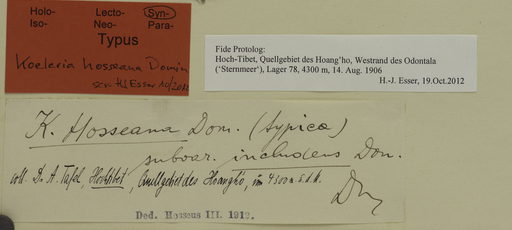 Holo- Lecto- Syn-
Iso- Neo- Para-
Typus
Koeleria hosseana Domin
scr. HJ Esser 10/2012
Fide Protolog:
Hoch-Tibet, Quellgebiet des Hoang'ho, Westrand des Odontala
('Sternmeer'), Lager 78, 4300 m, 14. Aug. 1906
H.-J. Esser, 19.Oct.2012
K. Hosseana Dom. (typica)
subvar. includens Dom.
coll. Dr. A. Tafel, Hochtibet, Quellgebiet des Hoangho, im 4300 m. s. d. M.
Dm
Ded. Hosseus III. 1912.